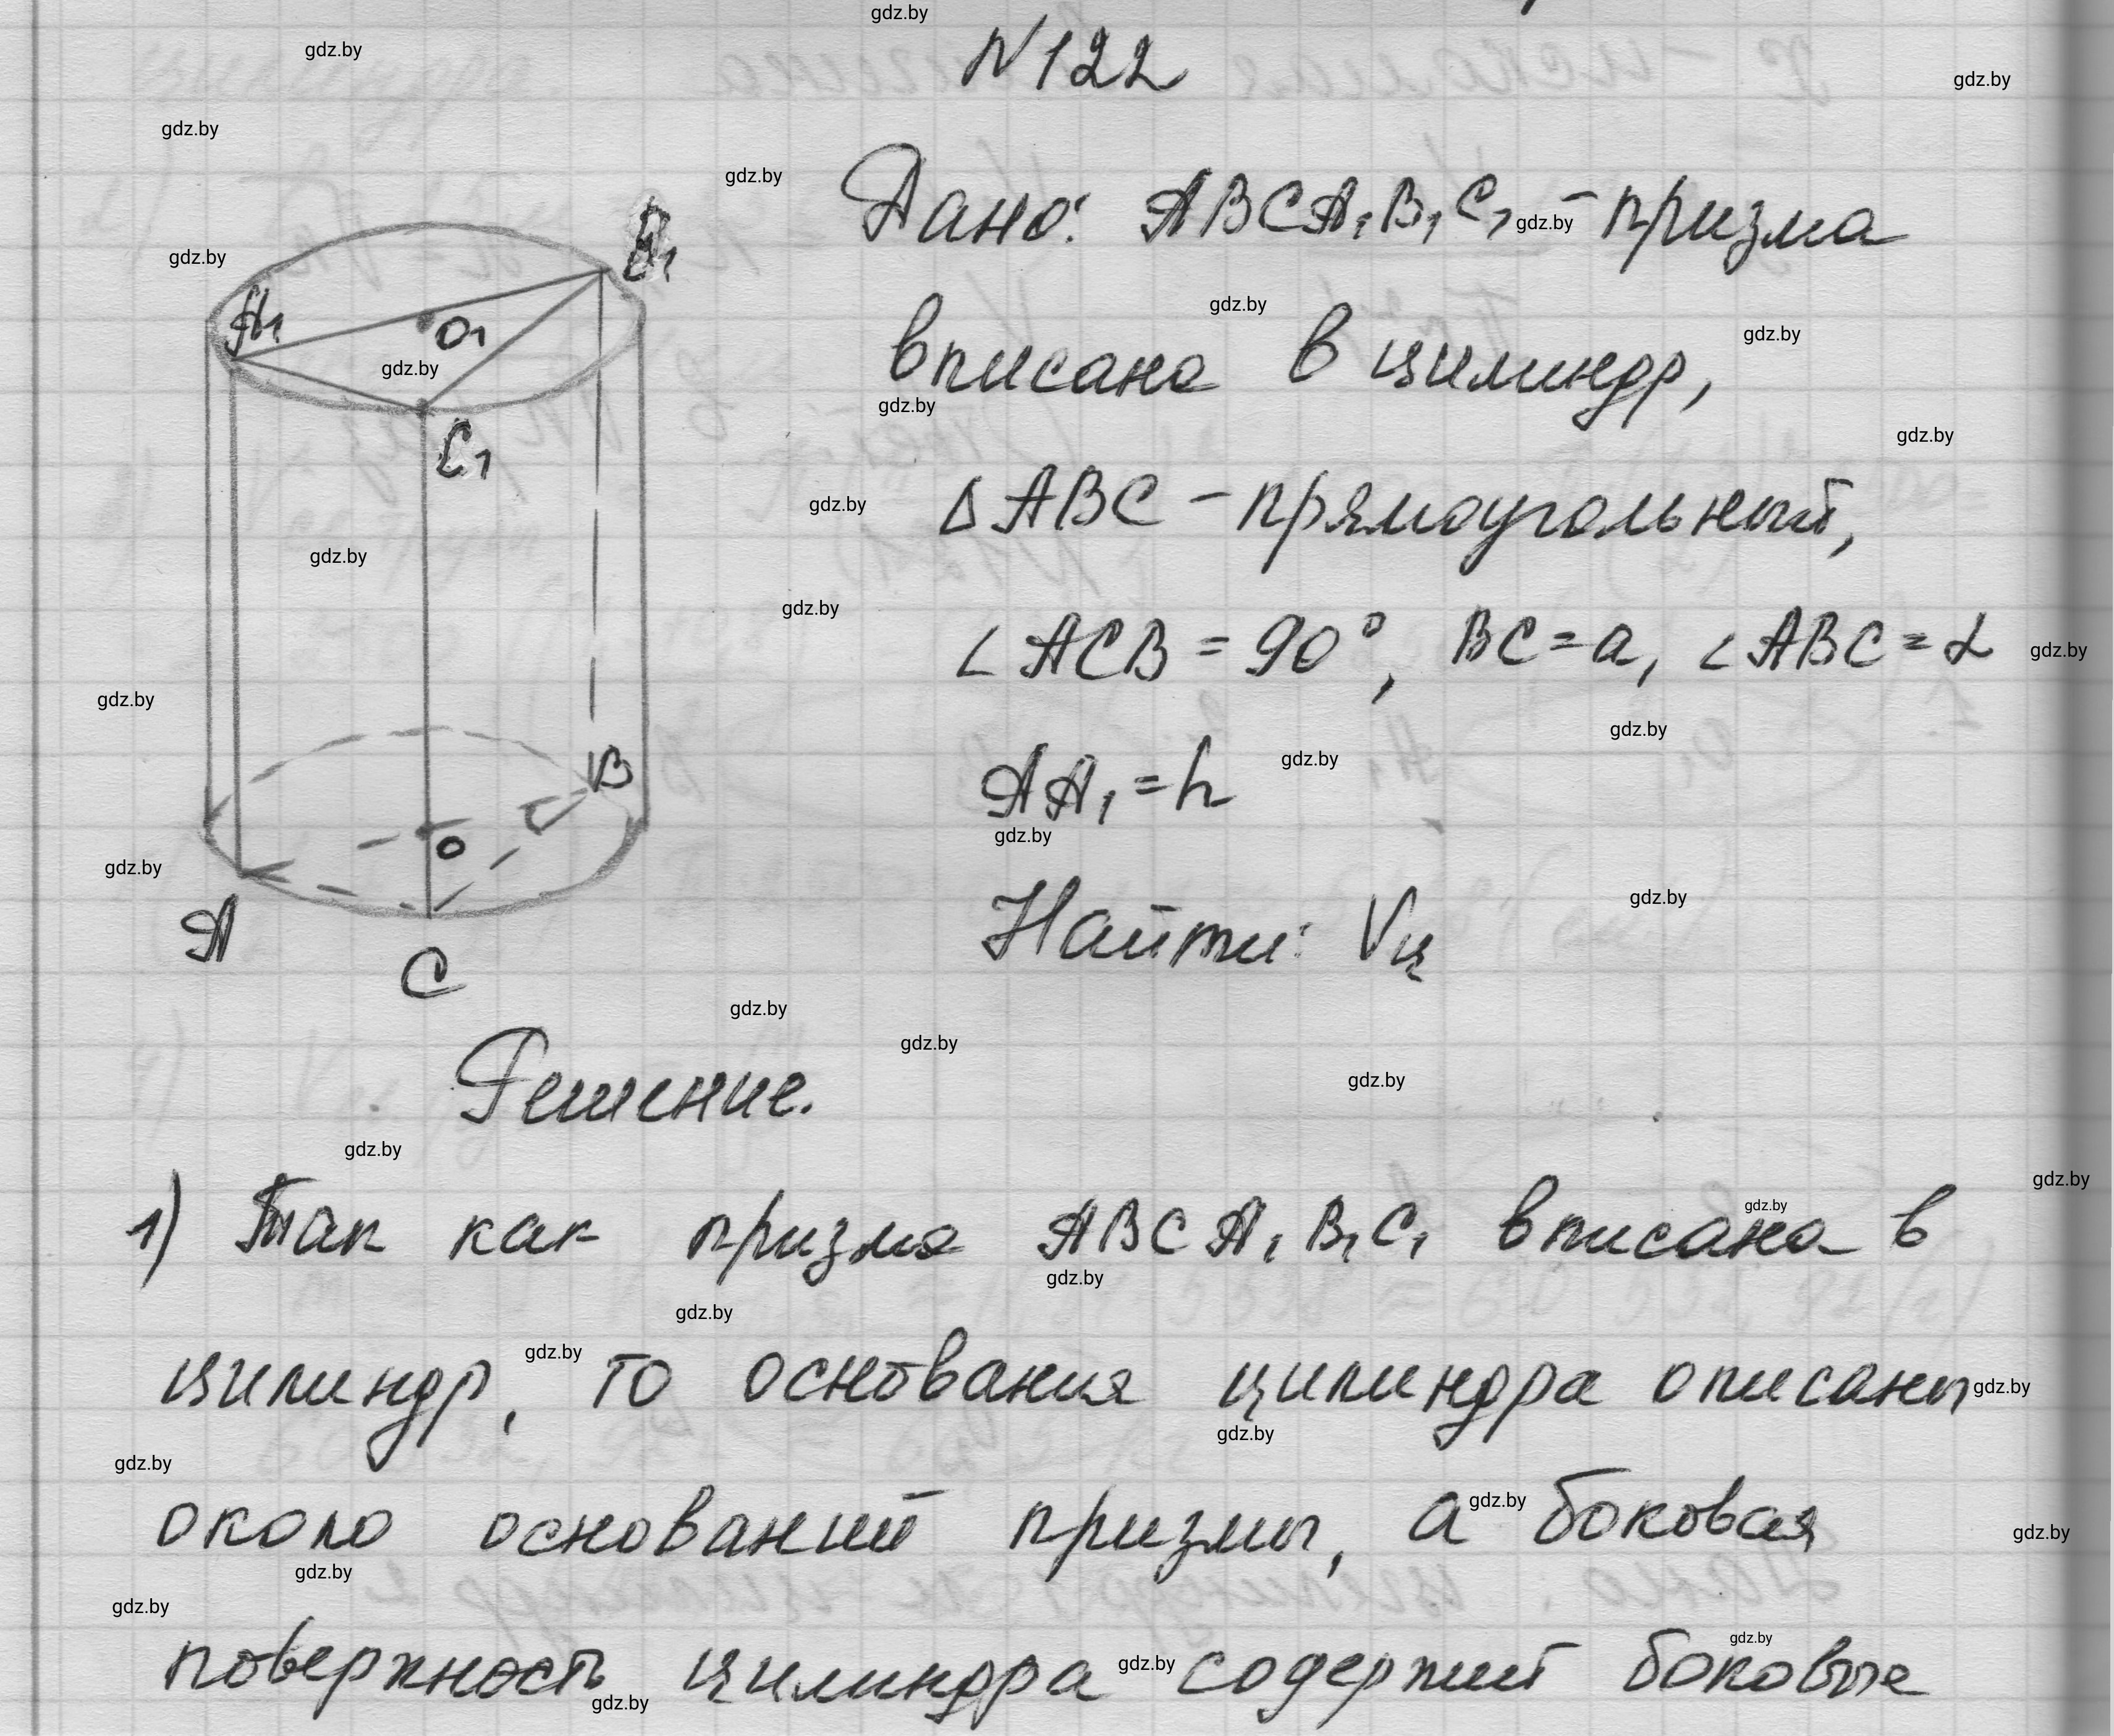 N122
Дано: ABCA₁B₁C₁ - призма
вписана в цилиндр,
Δ ABC - прямоугольный,
∠ ACB = 90°, BC = a, ∠ ABC = α
AA₁ = h
Найти: Vц
A₁
B₁
O₁
C₁
B
O
A
C
Решение.
1) Так как призма ABCA₁B₁C₁ вписана в
цилиндр, то основания цилиндра описаны
около оснований призмы, а боковая
поверхность цилиндра содержит боковые
gdz.by